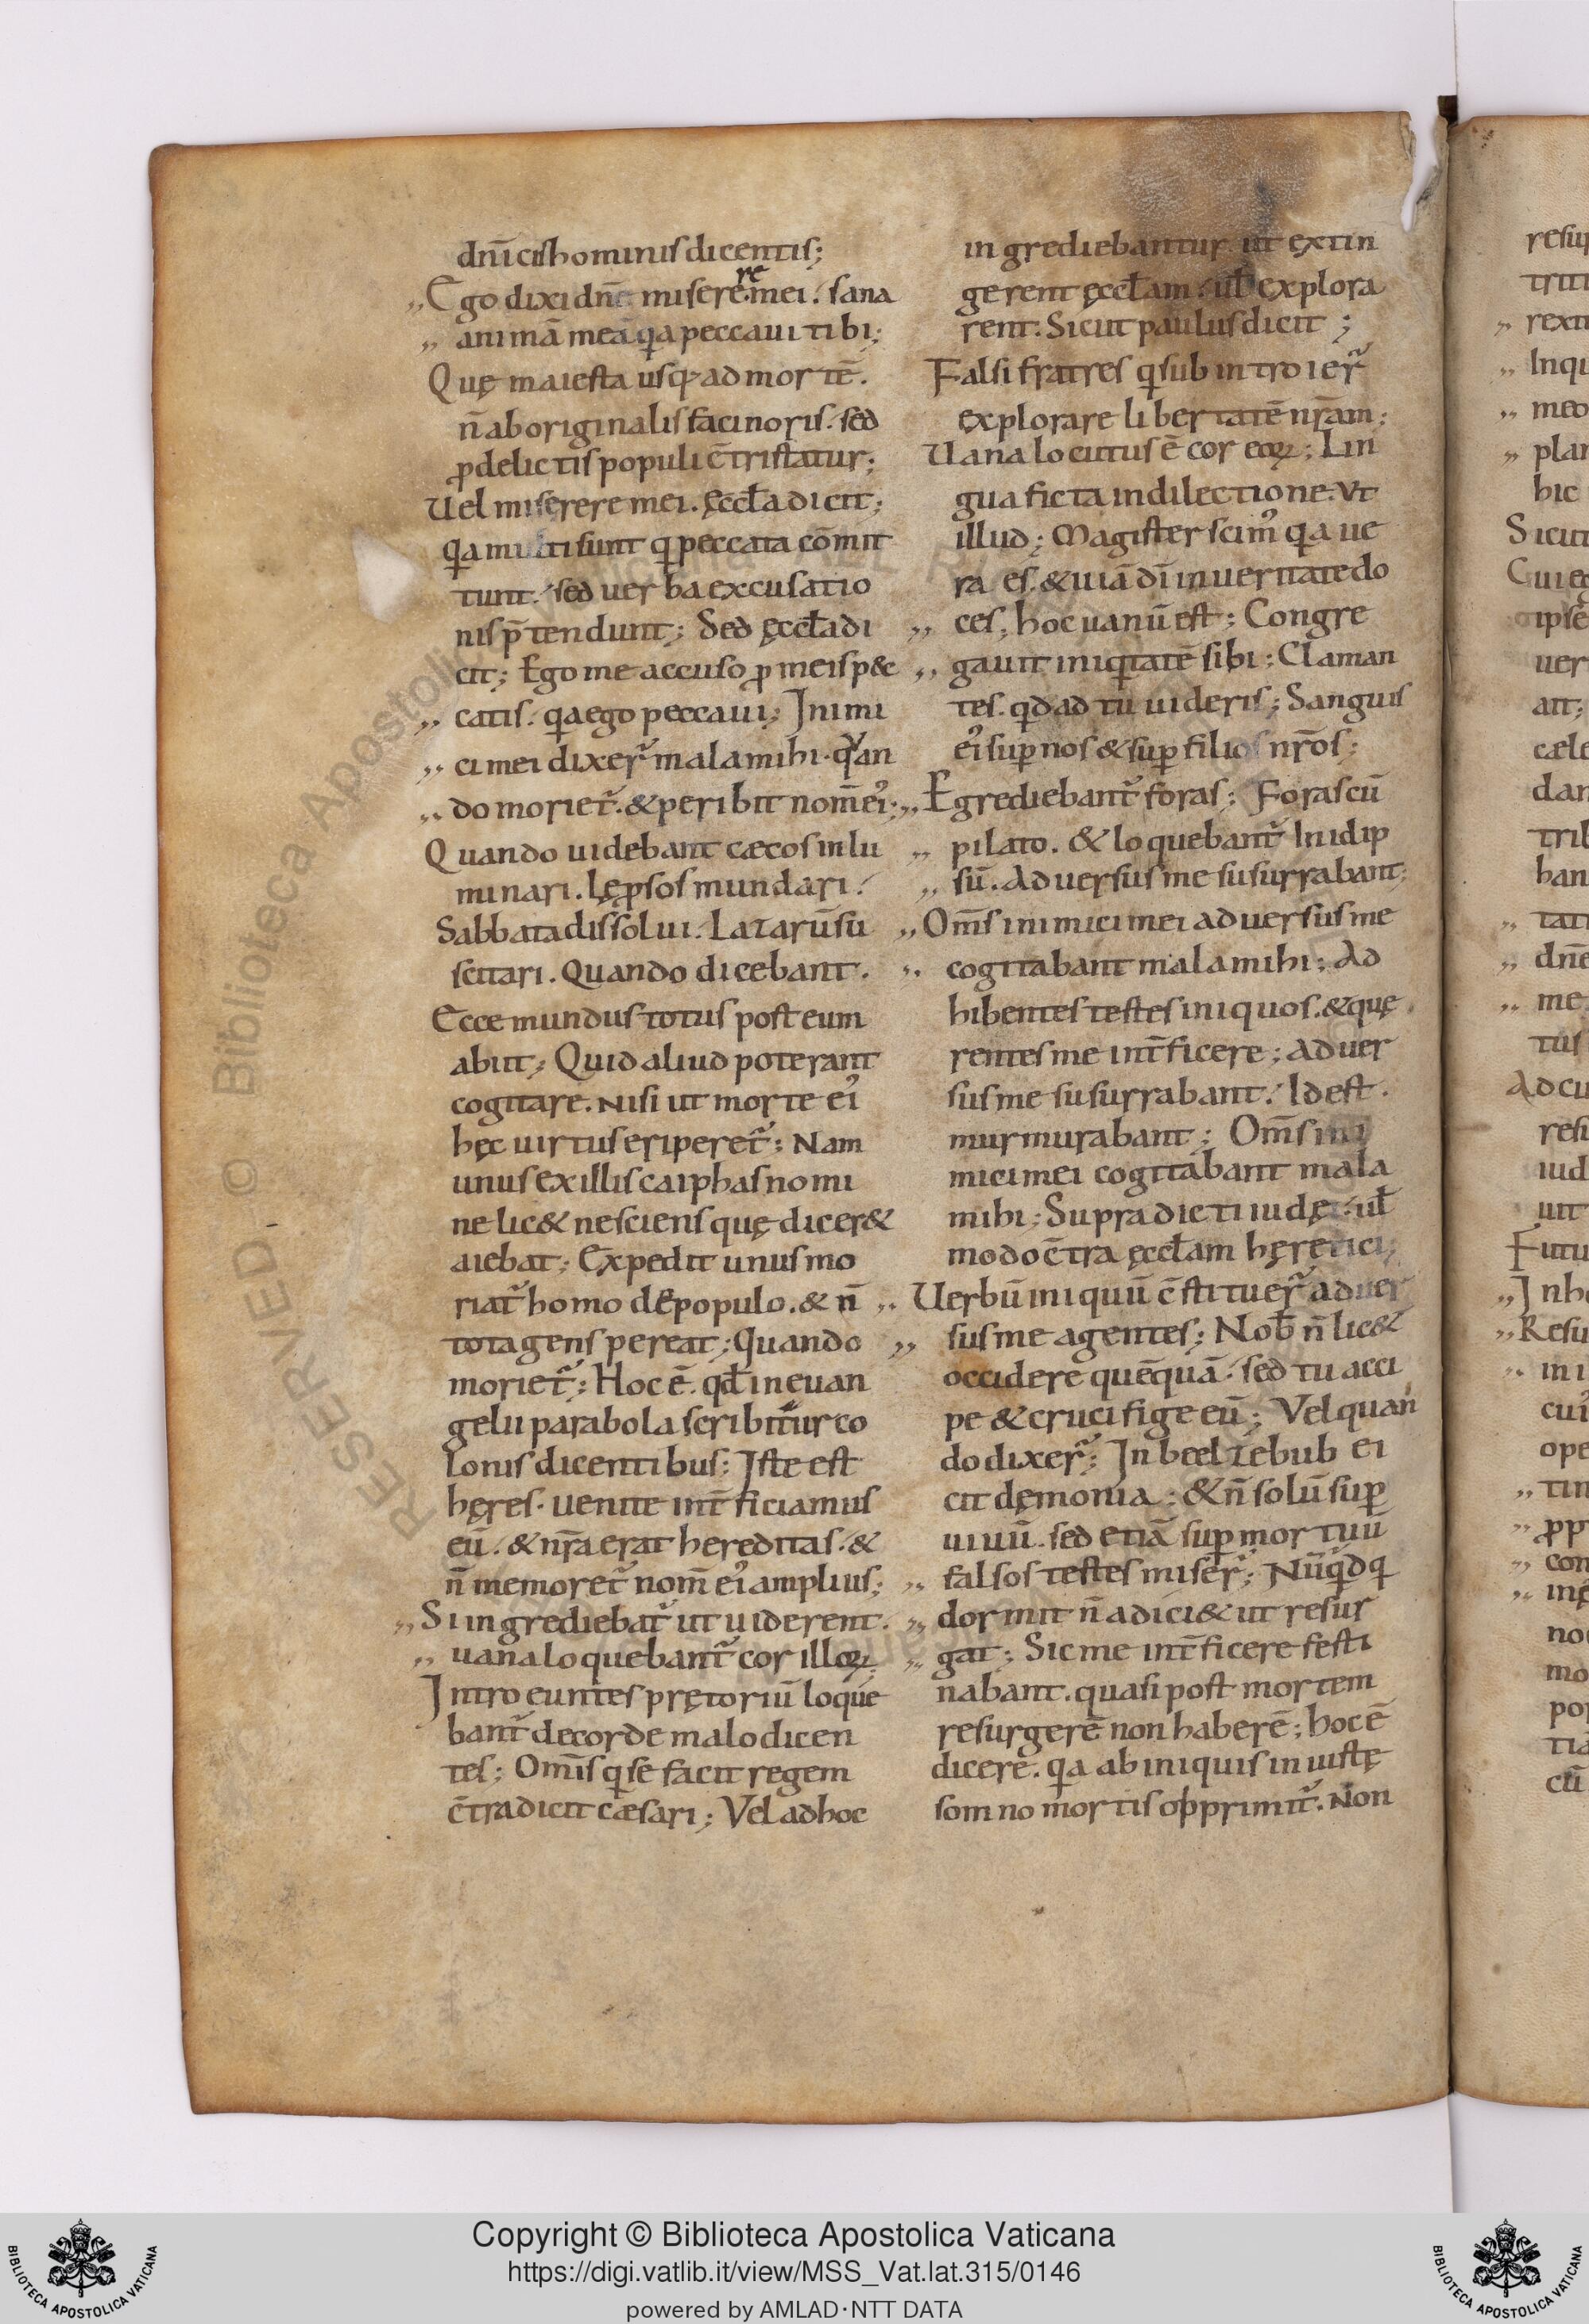 dnīcis hominis dicentis;
„ Ego dixi dnē miserere mei. sana
„ animā meā qa peccaui tibi;
Quę maiesta usq; ad mortē.
n̄ ab originalis facinoris. sed
ꝓ delictis populi c̄tristatur;
Uel miserere mei. ęccła dicit;
qa multi sunt qi peccata cōmit
tunt. sed uerba excusatio
nis p̄tendunt; Sed ęccła di
cit; Ego me accuso ꝓ meis p&c
„ catis. qa ego peccaui; Inimi
„ ci mei dixer̄ mala mihi. qan
„ do moriet̄. & peribit nom̄ ei᾽;
Quando uidebant cæcos inlu
minari. lęꝓsos mundari.
Sabbata dissolui. Lazarū su
scitari. Quando dicebant.
Ecce mundus totus post eum
abiit; Quid aliud poterant
cogitare. nisi ut morte ei᾽
hęc uirtus eriperet̄; Nam
unus ex illis caiphas nomi
ne lic& nesciens quę dicer&
aiebat; Expedit unus mo
riat̄ homo de populo. & n̄
tota gens pereat; Quando
moriet̄; Hoc ē. qd̄ in euan
gelii parabola scribitur co
lonis dicentibus; Iste est
hęres. uenite int̄ficiamus
eū. & nr̄a erat hereditas. &
n̄ memoret̄ nom̄ ei᾽ amplius;
„ Si ingrediebat̄ ut uiderent.
„ uana loquebant̄ cor illoꝝ;
Introeuntes prętoriū loque
bant̄ de corde malo dicen
tes; Omīs qi se facit regem
c̄tradicit cæsari; Vel ad hoc
ingrediebantur. ut extin
gerent ęccłam. uł explora
rent. Sicut paulus dicit;
Falsi fratres qi subintroier̄
explorare libertatē nr̄am;
Uana locutus ē cor eoꝝ; Lin
gua ficta in dilectione. Vt
illud; Magister scim᾽ qa ue
ra es. & uiā dī in ueritate do
ces, hoc uanū est; Congre
„ gauit iniqitatē sibi; Claman
„ tes. qid ad tu uideris; Sanguis
ei᾽ sup nos & sup filios nr̄os;
„ Egrediebant̄ foras; Foras cū
„ pilato. & loquebant̄ In idip
„ sū. Aduersus me susurrabant;
„ Om̄s inimici mei aduersus me
„ cogitabant mala mihi; Ad
hibentes testes iniquos. & quę
rentes me int̄ficere; aduer
sus me susurrabant. Id est.
murmurabant; Om̄s ini
mici mei cogitabant mala
mihi; Supradicti iudę. uł
modo c̄tra ęccłam hęretici;
„ Uerbū iniquū c̄stituer̄ aduer
„ sus me agentes; Nob̄ n̄ lic&
occidere quēquā. sed tu acci
pe & crucifige eū; Vel quan
do dixer̄; In beelzebub ei
cit dęmonia; & n̄ solū sup
uiuū. sed etiā sup mortuū
„ falsos testes miser̄; Nūqid q
„ dormit n̄ adici& ut resur
„ gat; Sic me int̄ficere festi
nabant. quasi post mortem
resurgerē non haberē; hoc ē
dicere. qa ab iniquis iniustę
somno mortis opprimit̄. Non
Copyright © Biblioteca Apostolica Vaticana
https://digi.vatlib.it/view/MSS_Vat.lat.315/0146
powered by AMLAD·NTT DATA